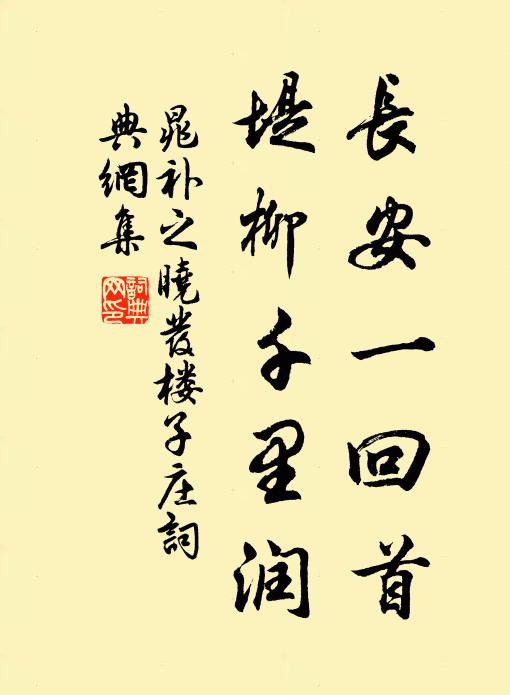 長安一回首
堤柳千里润
晁补之曉發楼子庄詞
典網集
詞典
网印